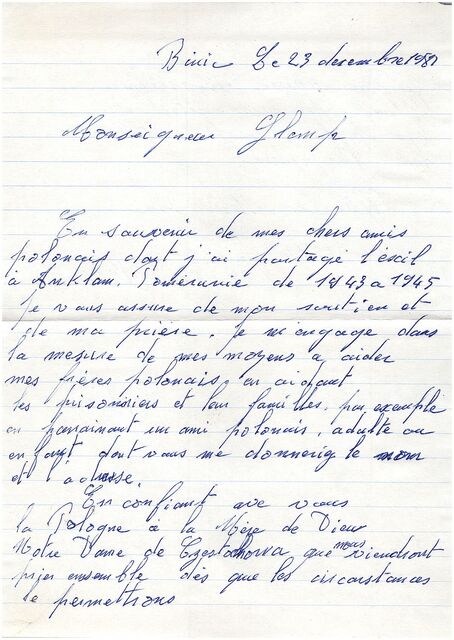 Binic Le 23 decembre 1981
Monseigneur Glemp
En souvenir de mes chers amis
polonais dont j'ai partagé l'exil
à Anklam. Poméranie de 1943 a 1945
je vous assure de mon soutien et
de ma prière. Je m'engage dans
la mesure de mes moyens a aider
mes frères polonais en aidant
les prisonniers et leur familles, par exemple
en parrainant un ami polonais, adulte ou
enfant dont vous me donnerez le nom
et l'adresse.
En confiant avec vous
la Pologne à la Mère de Dieu
Notre Dame de que nous viendront
prier ensemble dès que les circonstances
le permettrons